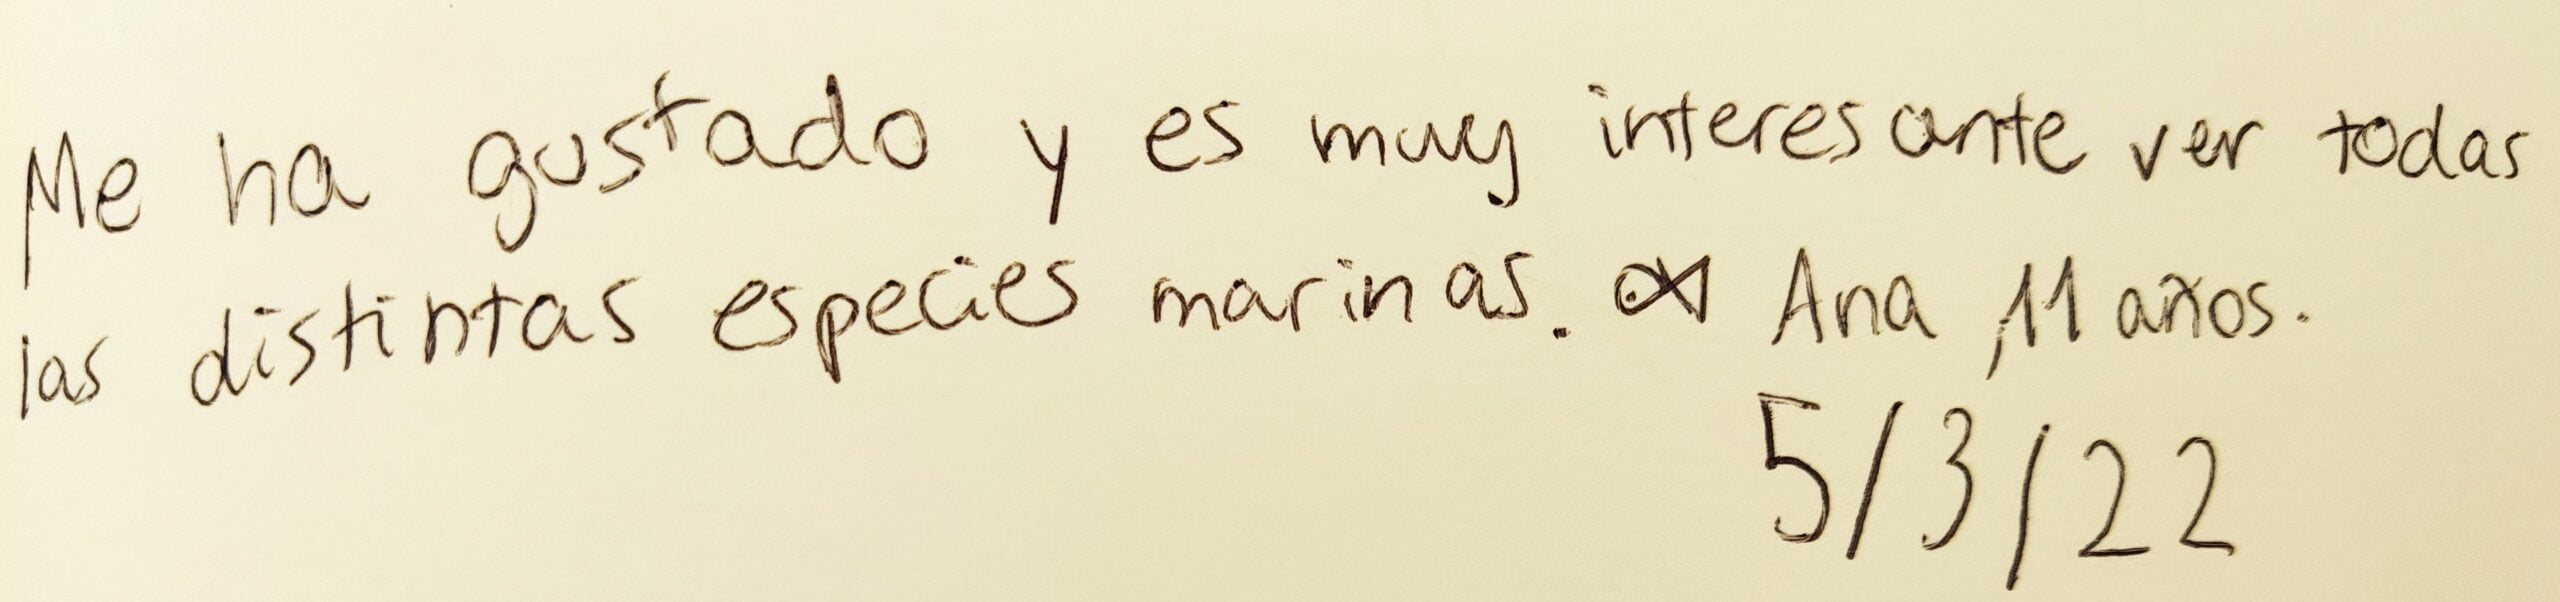 Me ha gustado y es muy interesante ver todas
las distintas especies marinas. Ana, 11 años.
5/3/22